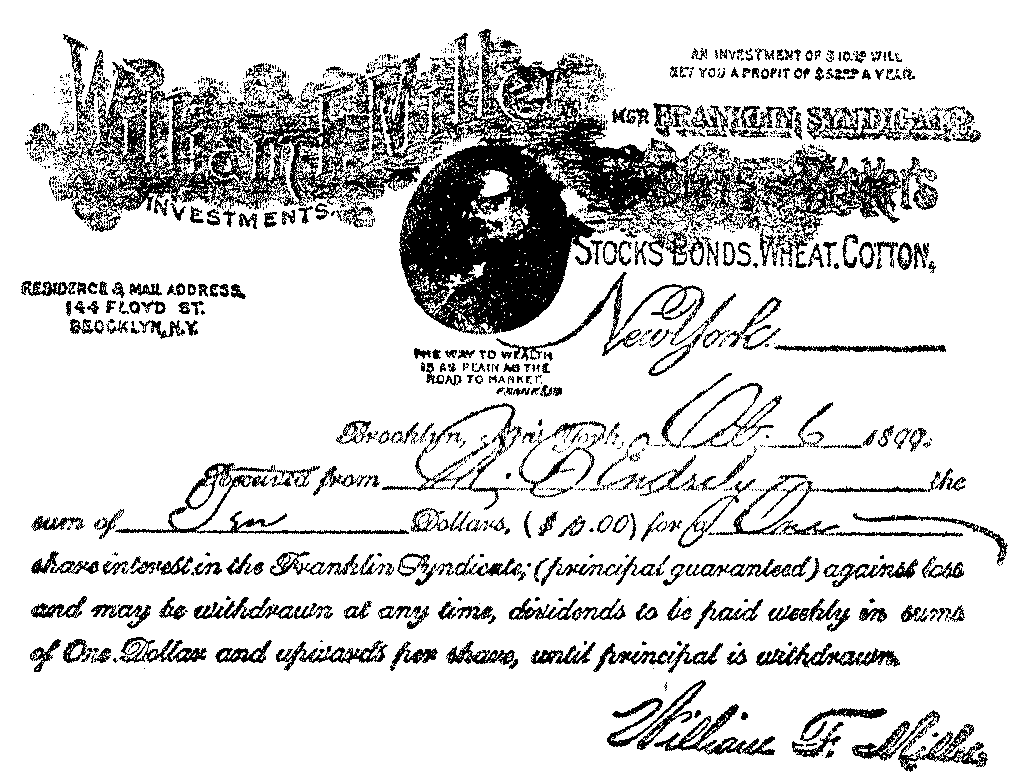 William F. Miller
INVESTMENTS.
AN INVESTMENT OF $10.00 WILL
NET YOU A PROFIT OF $52.00 A YEAR.
MGR FRANKLIN SYNDICATE,
STOCKS BONDS, WHEAT, COTTON,
RESIDENCE & MAIL ADDRESS,
144 FLOYD ST.
BROOKLYN, N.Y.
New York
THE WAY TO WEALTH
IS AS PLAIN AS THE
ROAD TO MARKET.
FRANKLIN
Brooklyn, New York, Oct. 6 1899.
Received from the
sum of Ten Dollars, ($10.00) for One
share interest in the Franklin Syndicate; (principal guaranteed) against loss
and may be withdrawn at any time, dividends to be paid weekly in sums
of One Dollar and upwards per share, until principal is withdrawn.
William F. Miller